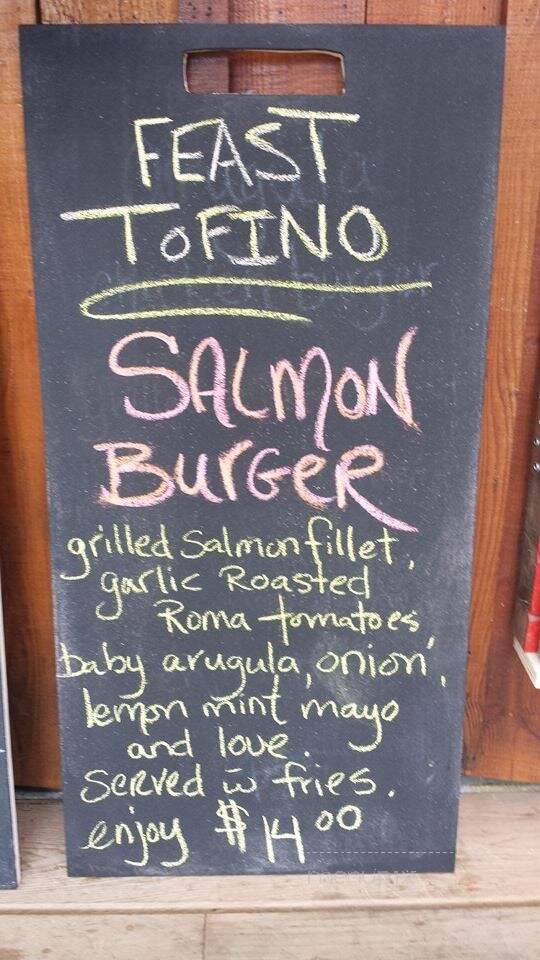 FEAST
TOFINO
SALMON
BURGER
grilled Salmon fillet,
garlic Roasted
Roma tomatoes,
baby arugula, onion,
lemon mint mayo
and love.
Served w̄ fries.
enjoy $14 00